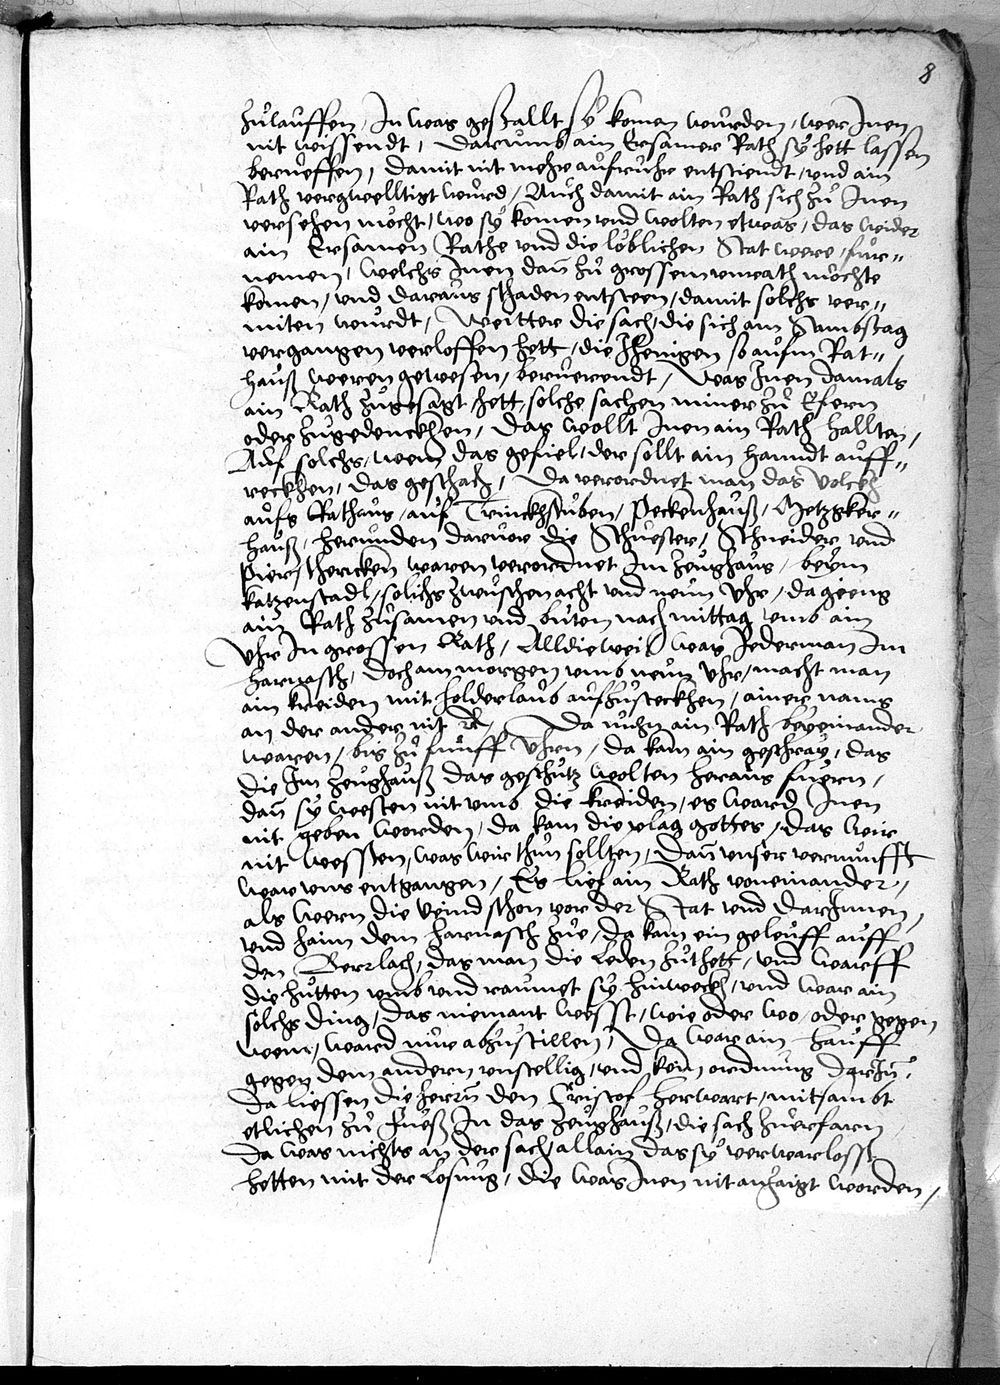 8
zulauffen, In was geßtallt sÿ komen wurden, wer Inen
nit wissendt, Darumb ain Ersamer Rath sÿ hett lassen
berueffen, damit nit mehr aufruhr entstiendt, und ain
Rath vergwelltigt wurd, Auch damit ain Rath sich zu Inen
versehen mocht, wo sÿ komen und wolten etwas, das wider
ain Ersamen Rathe und die löblichen Stat were, fur-
nemen, welchs Inen dan zu grossem unrath möchte
komen, und daraus schaden entsteen, damit solchs ver-
miten wurdt, Weitter die sach, die sich am Sambstag
vergangen verloffen hett, die Jhenigen so aufm Rat-
hauß weren gewesen, berverendt, Was Inen damals
ain Rath zugesagt hett, solche sachen nimer zu Efern
oder zugedenckhen, Das wollt Inen ain Rath hallten,
Auf solchs, wem das gefiel, der sollt ain Hanndt auff-
reckhen, das geschach, Da verordnet man das Volckh
aufs Rathaus, auf Trinckhstuben, Peckenhauß, Metzgker-
hauß, herunden darvor die Schuester, Schneider und
Pier, thericken waren verordnet Im Zeughaus, beÿm
katzenstadl, solichs zwuschen acht und neun Uhr, da gieng
ain Rath zusamen und buten nach mittag umb ain
Uhr In grossen Rath, Alldieweil was Jederman Im
harnasch, doch am morgen umb neun Uhr, macht man
ain kreiden mit holderlaub aufzusteckhen, ainer nams
an der ander nit ꝛc, Da nuhn ain Rath beÿeinander
waren, bis zu funff Uhrn, da kam ain geschraÿ, das
die Im Zeughauß das geschutz wolten heraus fuern,
dan sÿ westen nit umb die kreiden, es ward Inen
nit geben worden, da kam die plag gottes, das wir
nit wessten, was wir thun sollten, Dan unser vernunfft
war uns entgangen, Es lief ain Rath voneinander,
als wern die Veind schon vor der Stat und DarInnen,
und haim dem harnasch zue, da kam ein geleuff auff
den Berrlach, das man die Leden zuthett, und warff
die hutten umb und raumet sÿ hinweckh, und war ain
solchs ding, das niemant wesst, wie oder wo, oder gegen
wem, ward nur abzustillen, Da war ain hauff
gegen dem andern unstellig, und kein ordnung DarIn,
Da liessen die herrn den Cristof Herwart, mit sambt
etlichen zu Fueß In das Zeughauß, die sach zuerfarn
da was nichts an der sach, allain das sÿ verwarlosst
hetten mit der Losung, die was Inen nit anzaigt worden,